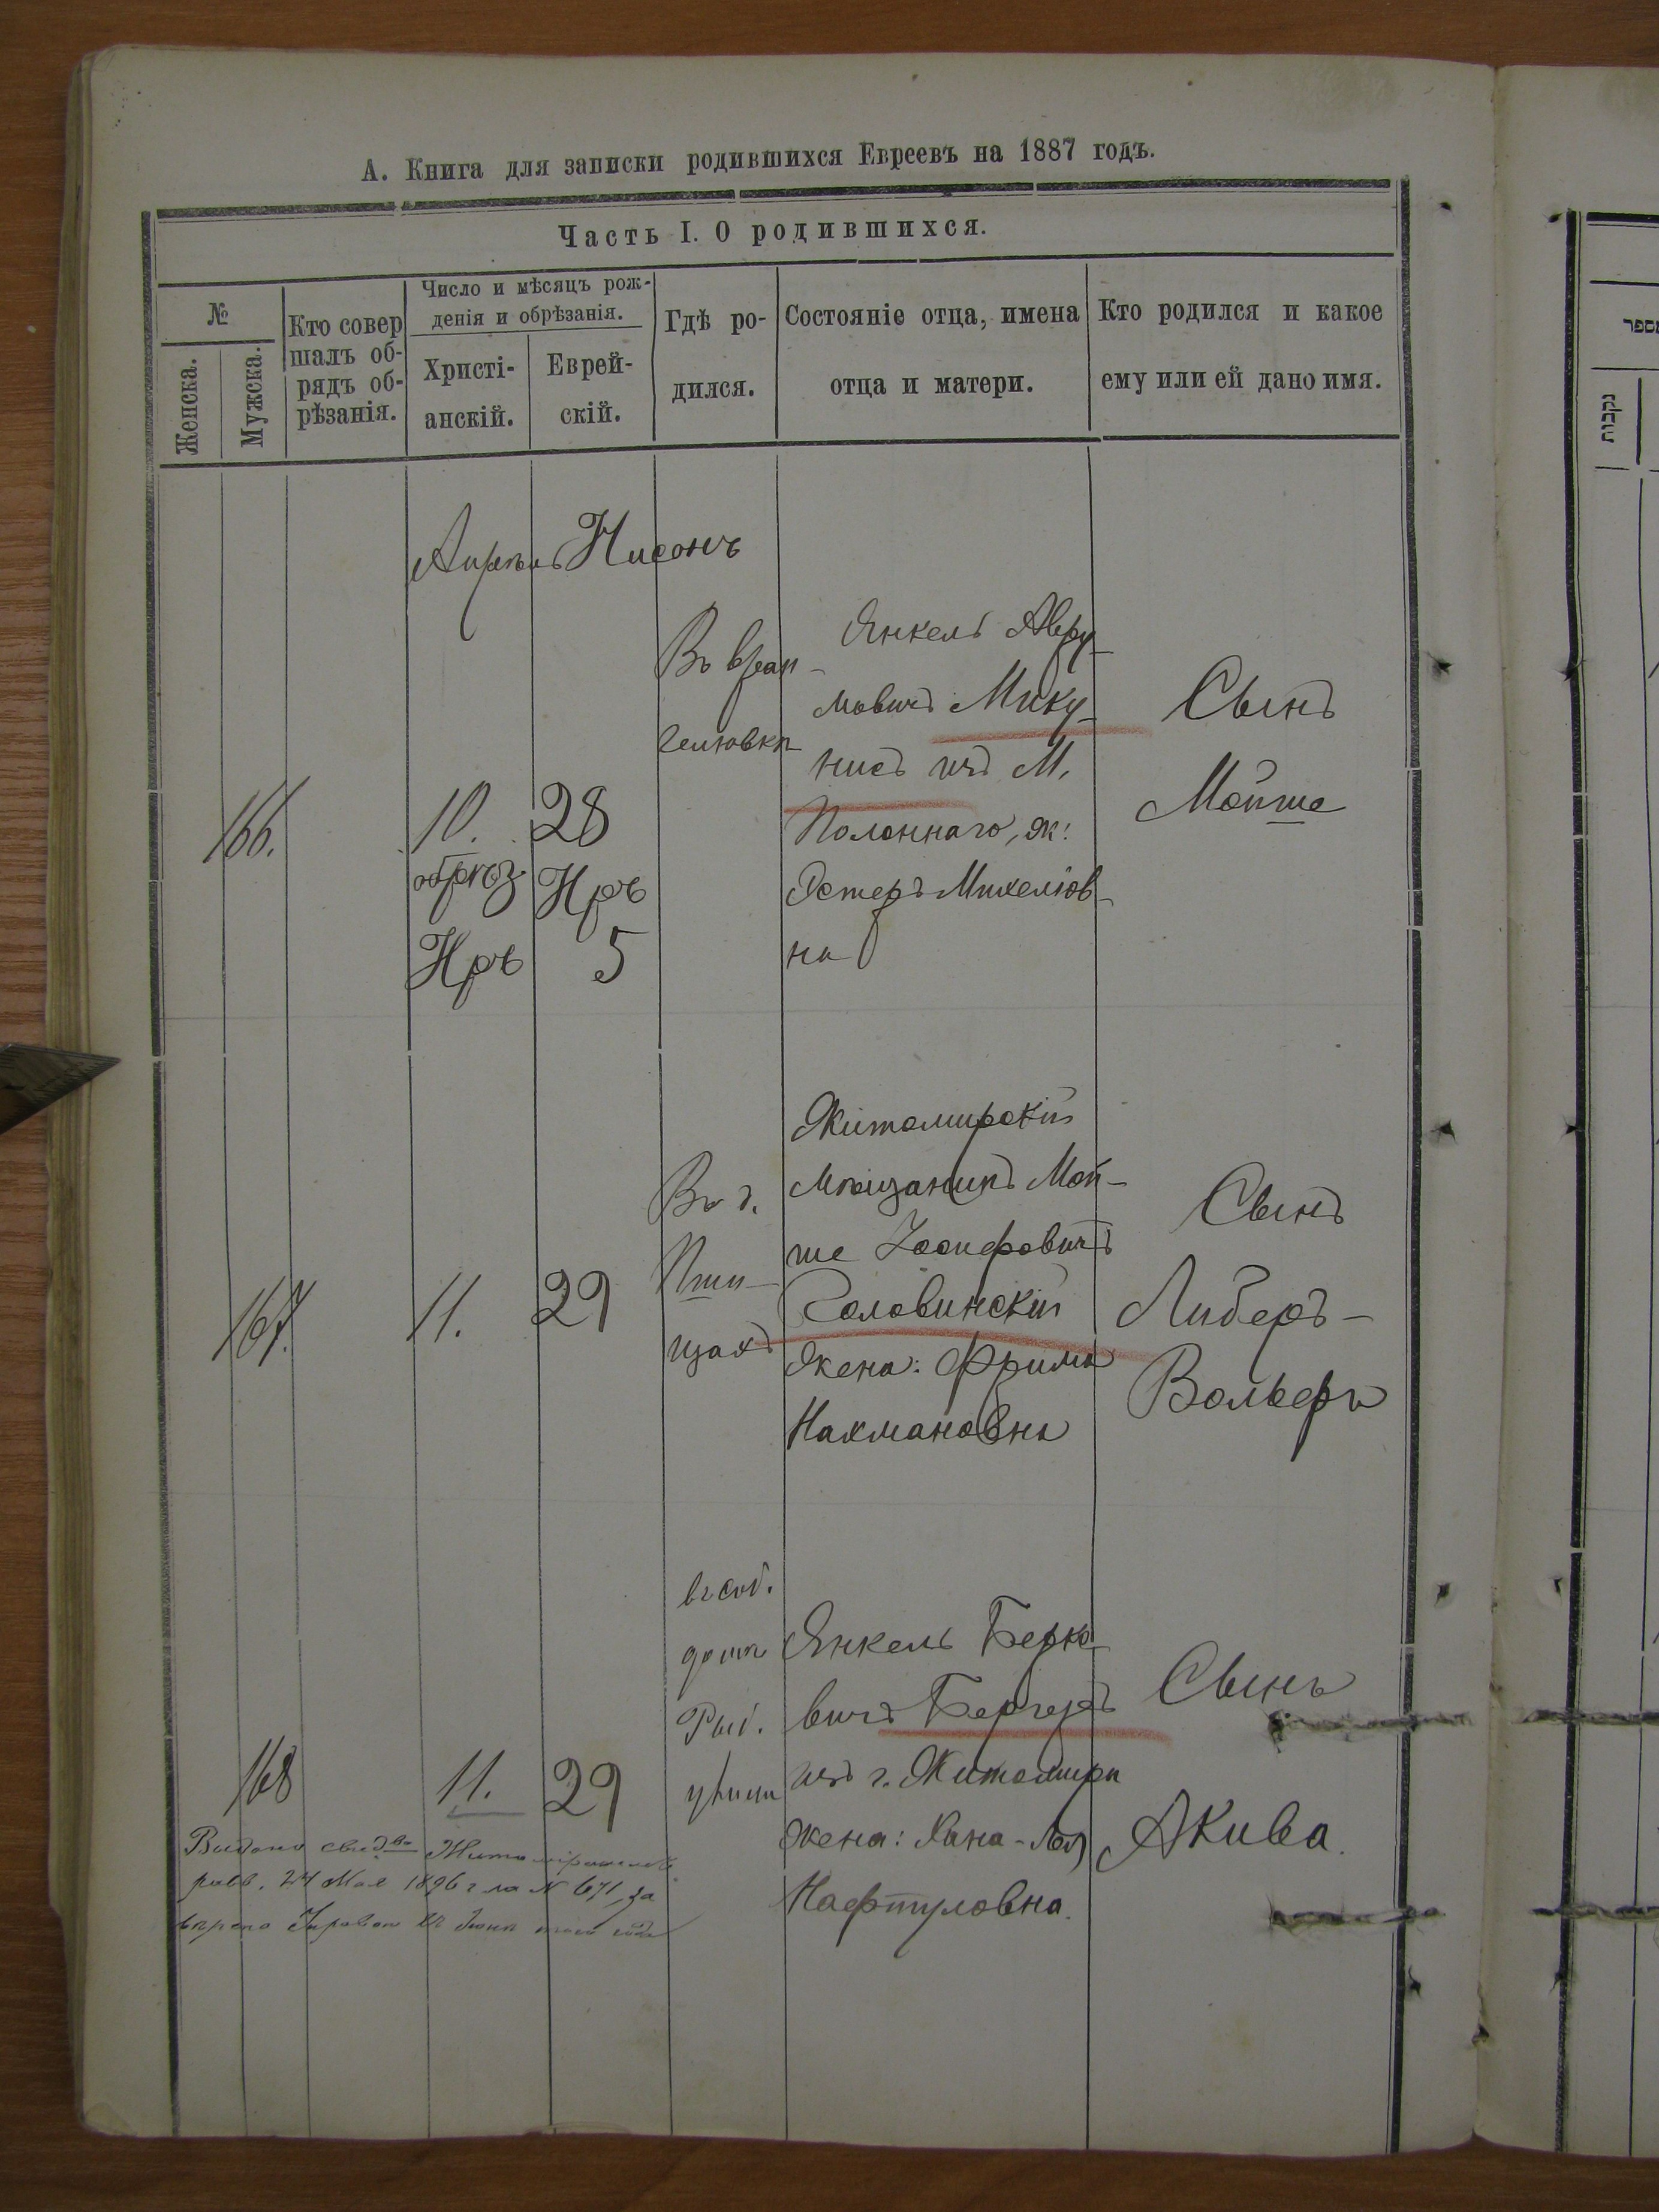 А. Книга для записки родившихся Евреевъ на 1887 годъ.
Часть I. О родившихся.
№
Женска.
Мужска.
Кто совер
шалъ об-
рядъ об-
рѣзанія.
Число и мѣсяцъ рож-
денія и обрѣзанія.
Христі-
анскій.
Еврей-
скій.
Гдѣ ро-
дился.
Состояніе отца, имена
отца и матери.
Кто родился и какое
ему или ей дано имя.
Апрѣль Нисонъ
166.
10.
обрѣз.
Нръ
28
Нръ
5
Въ Вран-
гелювкѣ
Янкель Авру-
мовичъ Мику-
нисъ изъ М.
Полоннаго, ж:
Эстеръ Михелюв-
на
Сынъ
Мойше
167.
11.
29
Въ г.
Пти-
цахъ
Житомирскій
Мѣщанинъ Мой-
ше Іосифовичъ
Головинскій
Жена: Фрима
Нахмановна
Сынъ
Либеръ-
Вольфъ
168
11.
29
домѣ
Янкель Берко-
вичъ Бергеръ
изъ г. Житомира
Жена: Хана-Лея
Нафтуловна.
Сынъ
Акива.
Выдано свид-во
равв. 24 Мая 1896 г за № 671, за
того года
מספר
נקבות